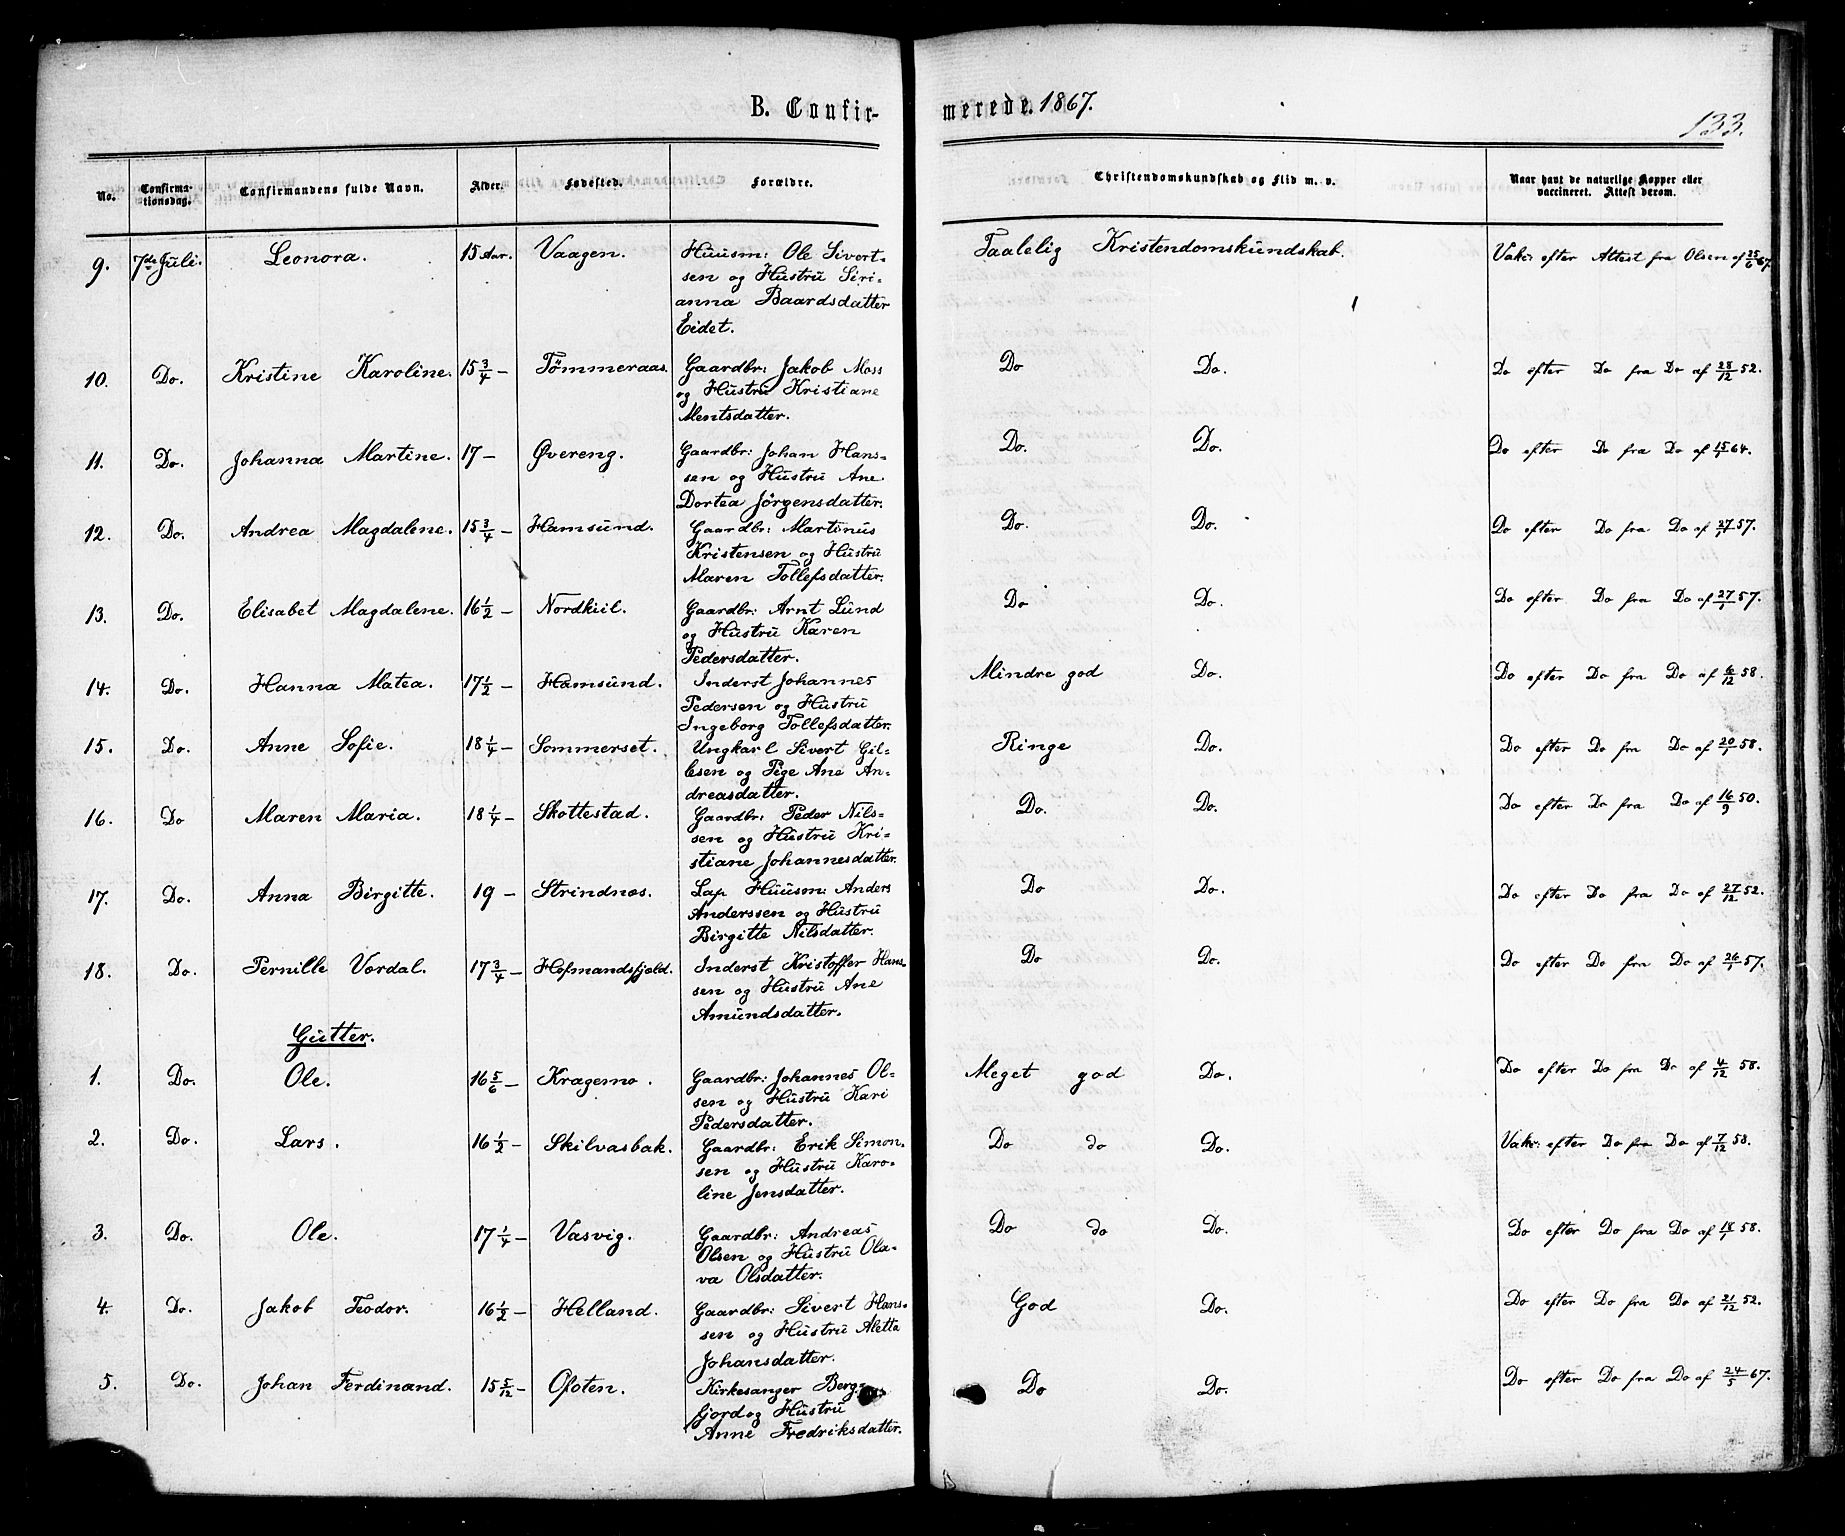 B. Confir-
merede. 1867.
133.
No.
Confirma-
tionsdag.
Confirmandens fulde Navn.
Alder.
Fødested.
Forældre.
Christendomskundskab og Flid m. v.
Naar havt de naturlige Kopper eller
vaccineret. Attest derom.
9. 7de Juli. Leonora. 15 Aar. Vaagen. Huusm: Ole Sivert- Taalelig Kristendomskundskab. Vak: efter Attest fra Olsen af 25/6 67.
sen og Hustru Siri-
anna Baardsdatter
Eidet.
10. Do. Kristine Karoline. 15 3/4 — Tömmeraas. Gaardbr: Jakob Moss Do Do. Do efter Do fra Do af 28/12 52.
og Hustru Kristiane
Mentsdatter.
11. Do. Johanna Martine. 17 — Øvereng. Gaardbr: Johan Hans- Do. Do. Do efter Do fra Do af 15/1 64.
sen og Hustru Ane
Dortea Jörgensdatter.
12. Do. Andrea Magdalene. 15 3/4 — Hamsund. Gaardbr: Martinus Do. Do. Do efter Do fra Do af 27/1 57.
Kristensen og Hustru
Maren Tollefsdatter.
13. Do. Elisabet Magdalene. 16 1/2 — Nordkiil. Gaardbr: Arnt Lund Do Do. Do efter Do fra Do af 27/1 57.
og Hustru Karen
Pedersdatter.
14. Do. Hanna Matea. 17 1/2 — Hamsund. Inderst Johannes Mindre god Do. Do efter Do fra Do af 6/12 58.
Pedersen og Hustru
Ingeborg Tollefsdatter.
15. Do. Anne Sofie. 18 1/4 — Sommerset. Ungkarl Sivert Gil- Ringe Do. Do efter Do fra Do af 20/1 58.
lesen og Pige Ane An-
dreasdatter.
16. Do Maren Maria. 18 1/4 — Skottestad. Gaardbr: Peder Nils- Do. Do. Do efter Do fra Do af 16/9 50.
sen og Hustru Kri-
stiane Johannesdatter.
17. Do. Anna Birgitte. 19 — Strindnæs. Lap Huusm: Anders Do Do. Do efter Do fra Do af 27/12 52.
Anderssen og Hustru
Birgitte Nilsdatter.
18. Do. Pernille Vordal. 17 3/4 — Hofmandsfjeld. Inderst Kristoffer Hans- Do Do. Do efter Do fra Do af 26/1 57.
sen og Hustru Ane
Amundsdatter.
Gutter.
1. Do. Ole. 16 5/6 — Kragemo. Gaardbr: Johannes Ol- Meget god Do. Do efter Do fra Do af 4/12 58.
sen og Hustru Kari
Pedersdatter.
2. Do. Lars. 16 1/2 — Skilvasbak. Gaardbr: Erik Simon- Do do Do. Vak: efter Do fra Do af 7/12 58.
sen og Hustru Karo-
line Jensdatter.
3. Do. Ole. 17 1/4 — Vasvig. Gaardbr: Andreas Do do Do. Do efter Do fra Do af 18/1 58.
Olsen og Hustru Ola-
va Olsdatter.
4. Do. Jakob Teodor. 16 1/2 — Helland. Gaardbr: Sivert Hans- God Do. Do efter Do fra Do af 21/12 52.
sen og Hustru Aletta
Johansdatter.
5. Do. Johan Ferdinand. 15 5/12 — Ofoten. Kirkesanger Berg- Do Do. Do efter Do fra Do af 24/5 67.
fjord og Hustru
Anne Fredriksdatter.